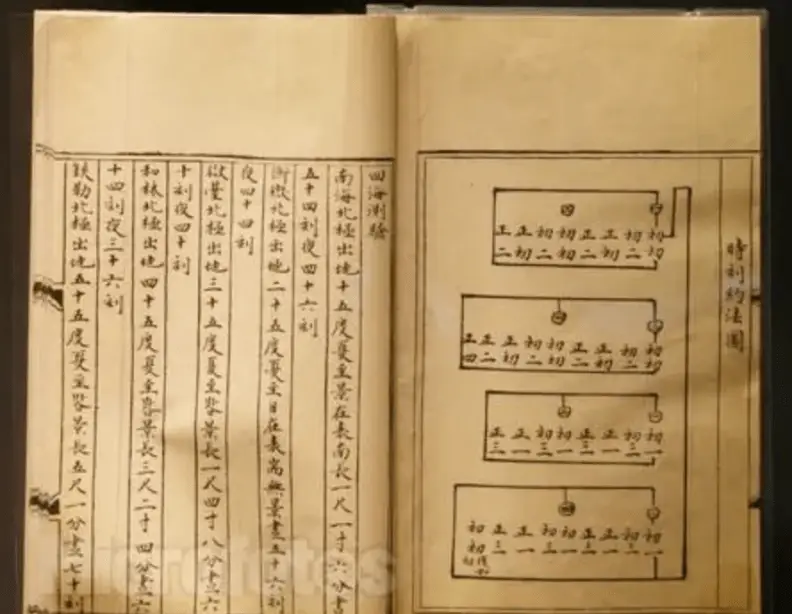 時刻約法圖
初初
初二
正初
正二
初初
初二
正初
正二
初初
初二
正初
正二
初初
初二
正初
正二
正四
初一
初三
正一
正三
初一
初三
正一
正三
初一
初三
正一
正三
初一
初三
正一
正三
初初
四海測驗
南海北極出地十五度夏至景在表南長一尺一寸六分晝
五十四刻夜四十六刻
衡嶽北極出地二十五度夏至日在表端無景晝五十六刻
夜四十四刻
嶽臺北極出地三十五度夏至晷景長一尺四寸八分晝六
十刻夜四十刻
和林北極出地四十五度夏至晷景長三尺二寸四分晝六
十四刻夜三十六刻
鐵勒北極出地五十五度夏至晷景長五尺一分晝七十刻
microfotos